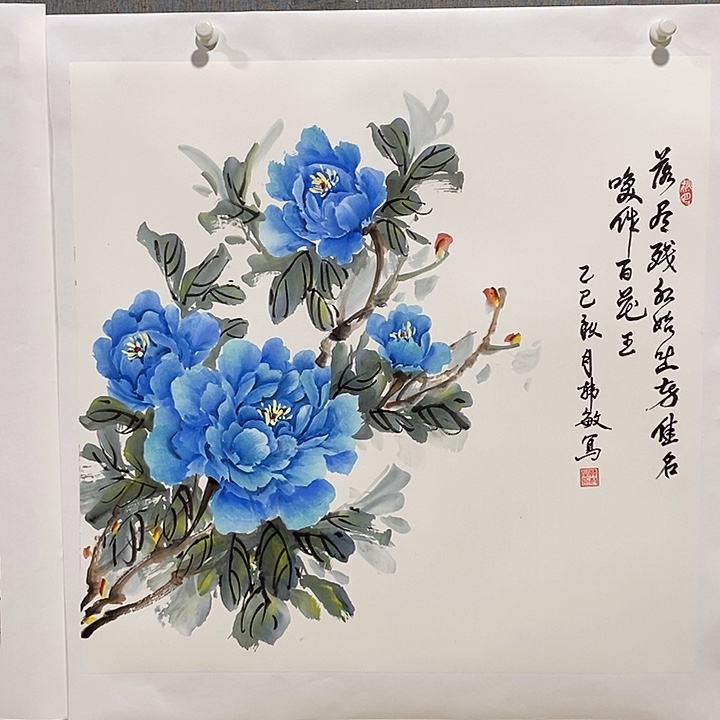 落尽残红始吐芳佳名
唤作百花王
乙巳秋月韩敏寫